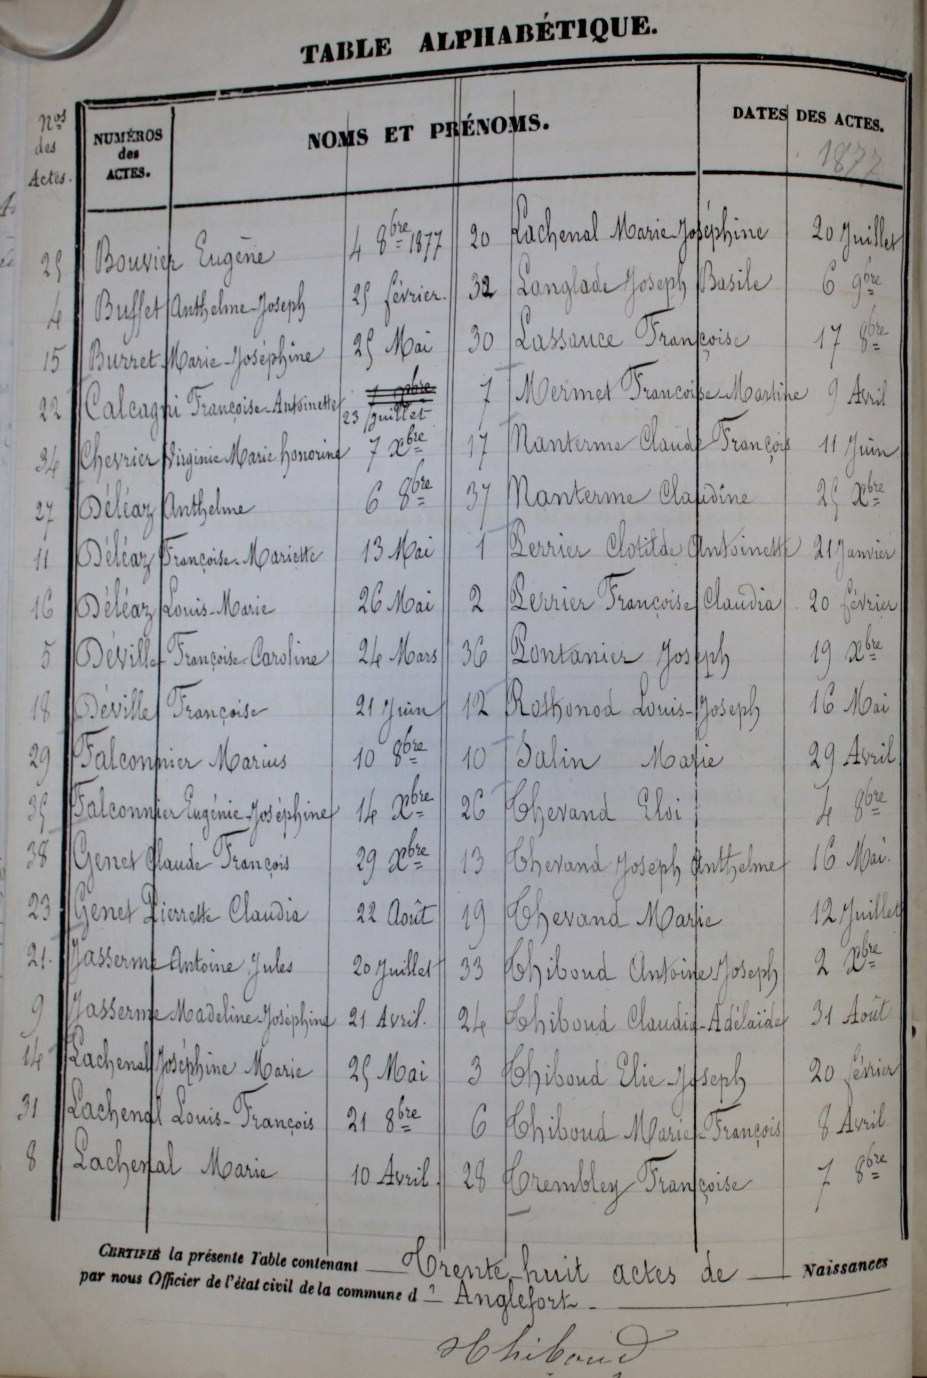 TABLE ALPHABÉTIQUE.
Nos des Actes.
NUMÉROS des ACTES.
NOMS ET PRÉNOMS.
DATES DES ACTES.
1877
25 Bouvier Eugène 4 8bre 1877
4 Buffet Anthelme-Joseph 25 février.
15 Burret Marie-Joséphine 25 Mai
22 Calcagni Françoise-Antoinette 23 Juillet
34 Chevrier Virginie Marie honorine 7 Xbre
27 Déléaz Anthelme 6 8bre
11 Déléaz Françoise-Mariette 13 Mai
16 Déléaz Louis-Marie 26 Mai
5 Déville Françoise-Caroline 24 Mars
18 Déville Françoise 21 Juin
29 Falconnier Marius 10 8bre
35 Falconnier Eugénie-Joséphine 14 Xbre
38 Genet Claude François 29 Xbre
23 Genet Pierrette Claudia 22 Août
21. Jasserme Antoine Jules 20 Juillet
9 Jasserme Madeline-Joséphine 21 Avril.
14 Lachenal Joséphine Marie 25 Mai
31 Lachenal Louis-François 21 8bre
8 Lachenal Marie 10 Avril.
20 Lachenal Marie-Joséphine 20 Juillet
32 Langlade Joseph Basile 6 9bre
30 Lassauce Françoise 17 8bre
7 Mermet Françoise-Martine 9 Avril
17 Nanterme Claude François 11 Juin
37 Nanterme Claudine 25 Xbre
1 Perrier Clotilde Antoinette 21 Janvier
2 Perrier Françoise Claudia 20 février
36 Pontanier Joseph 19 Xbre
12 Rothonod Louis-Joseph 16 Mai
10 Salin Marie 29 Avril
26 Thevand Eloi 4 8bre
13 Thevand Joseph Anthelme 16 Mai.
19 Thevand Marie 12 Juillet
33 Thiboud Antoine Joseph 2 Xbre
24 Thiboud Claudia-Adélaïde 31 Août
3 Thiboud Elie-Joseph 20 février
6 Thiboud Marie-François 8 Avril
28 Trembley Françoise 7 8bre
CERTIFIÉ la présente Table contenant Trente-huit actes de Naissances
par nous Officier de l'état civil de la commune d'Anglefort
Thiboud